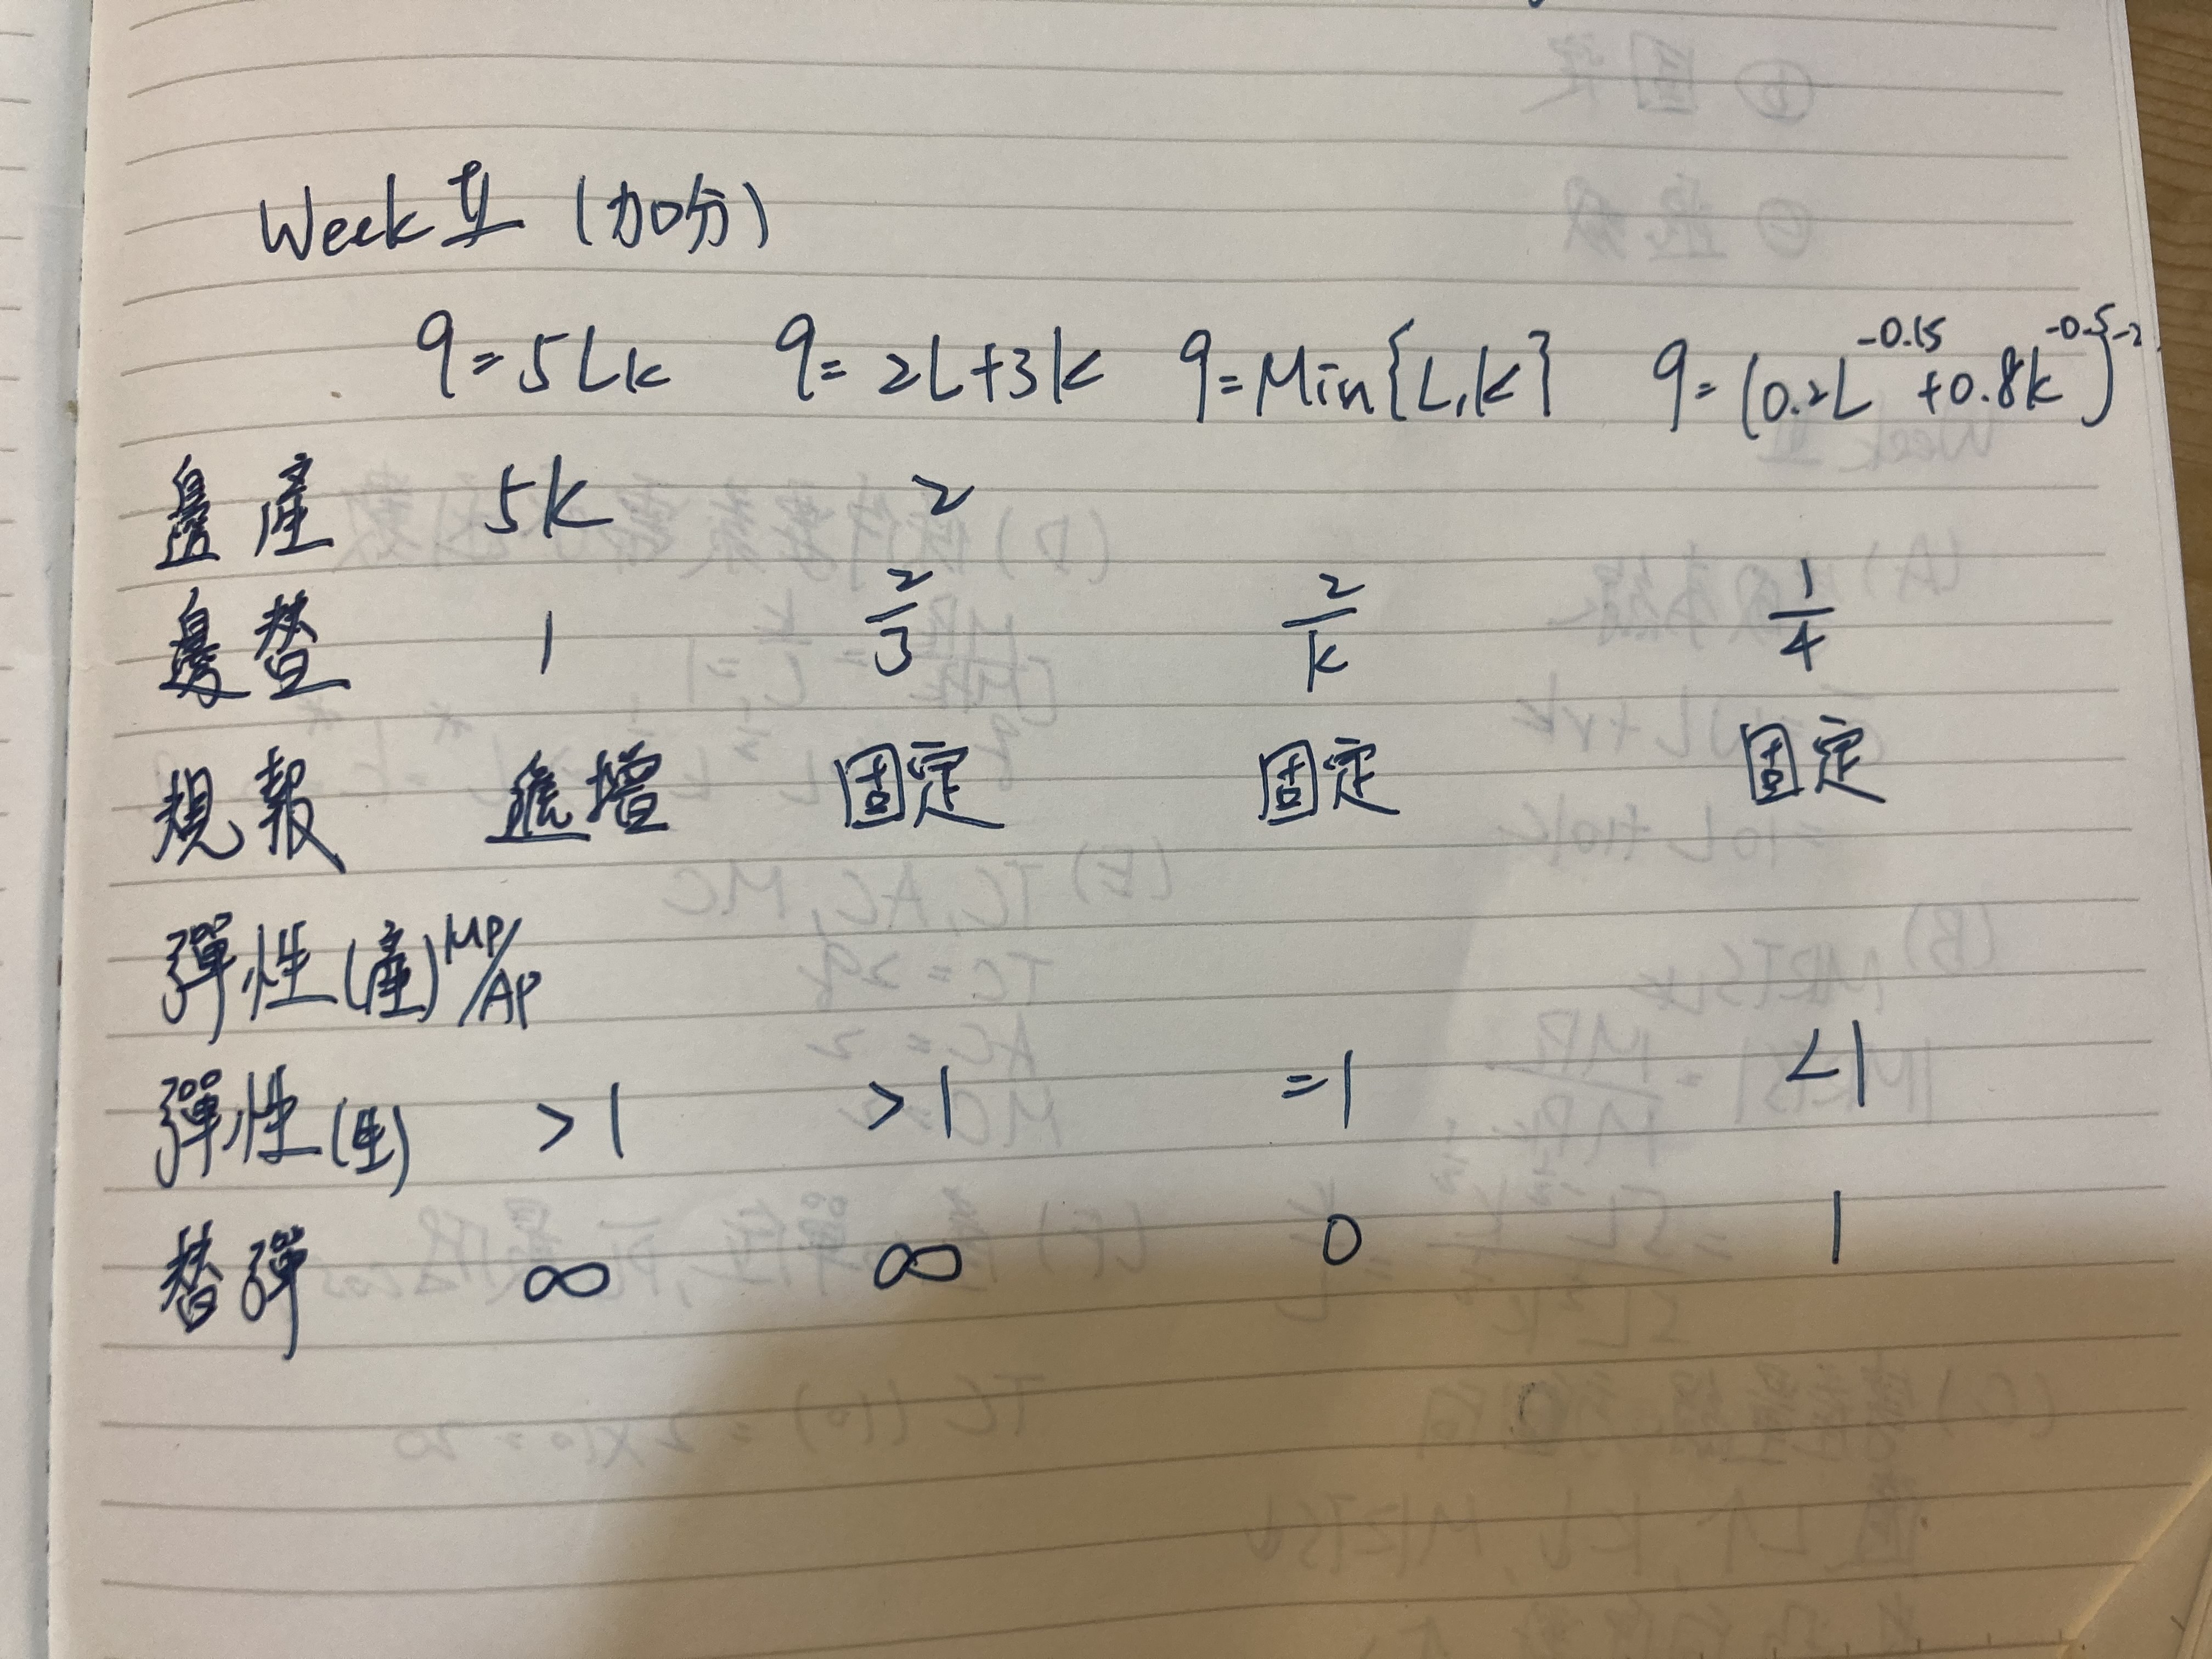 Week 五 (加分)
q=5Lk q=2L+3k q=Min{L,k} q=(0.2L^-0.15+0.8k^-0.5)^-2
邊產 5k 2
邊替 1 2/3 2/k 1/4
規報 遞增 固定 固定 固定
彈性(產)MP/AP
彈性(生) >1 >1 =1 <1
替彈 ∞ ∞ 0 1